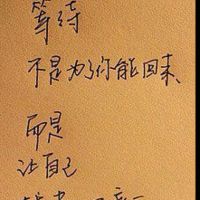 等待
不是为了你能回来、
而是
让自己